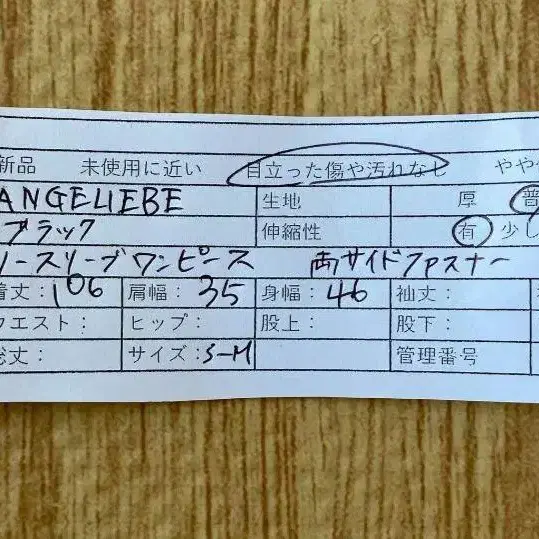 新品 未使用に近い 目立った傷や汚れなし やや
ANGELIEBE 生地 厚 普
ブラック 伸縮性 有 少し
リースリーブワンピース 両サイドファスナー
着丈：106 肩幅：35 身幅：46 袖丈：
ウエスト： ヒップ： 股上： 股下：
総丈： サイズ：S-M 管理番号